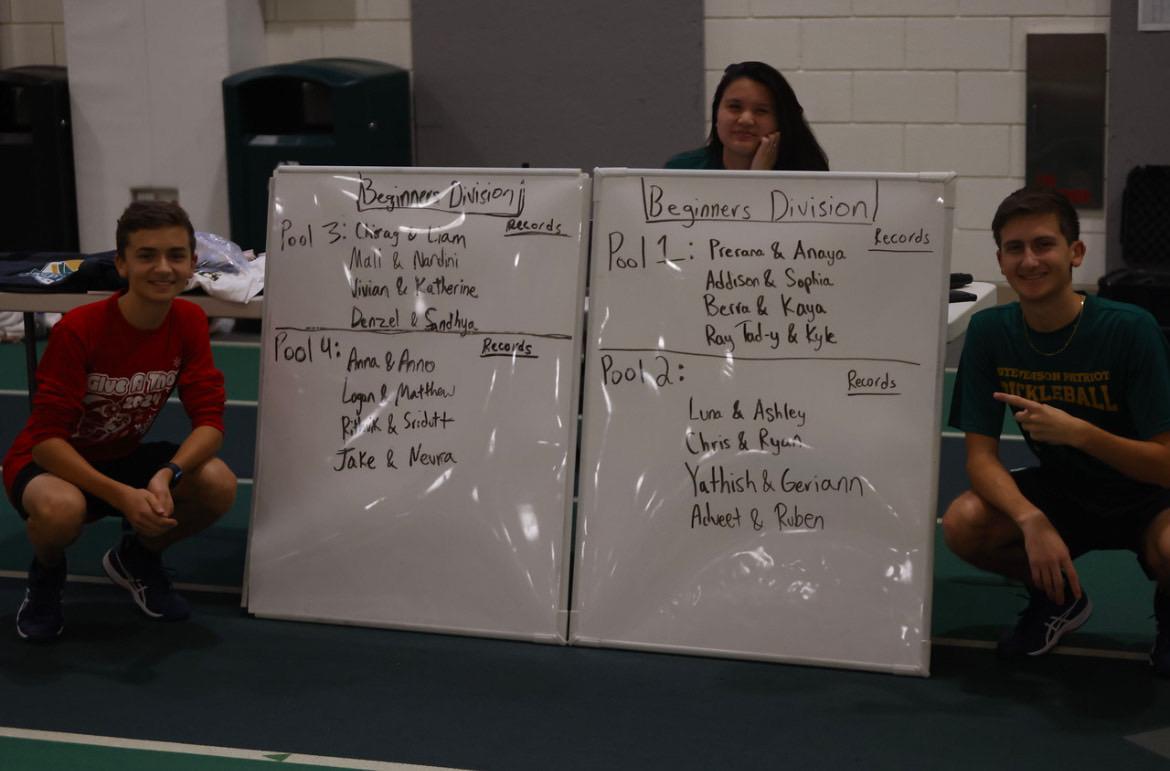 Beginners Division
Pool 3: Chirag & Liam
Records
Mali & Nandini
Vivian & Katherine
Denzel & Sandhya
Pool 4:
Records
Anna & Anno
Logan & Matthew
& Sridutt
Jake & Nevra
Beginners Division
Records
Pool 1: Prerana & Anaya
Addison & Sophia
Berra & Kaya
Ray Tad-y & Kyle
Pool 2:
Records
Luna & Ashley
Chris & Ryan
Yathish & Geriann
Adveet & Ruben
Give A Thon
STEVENSON PATRIOT
PICKLEBALL